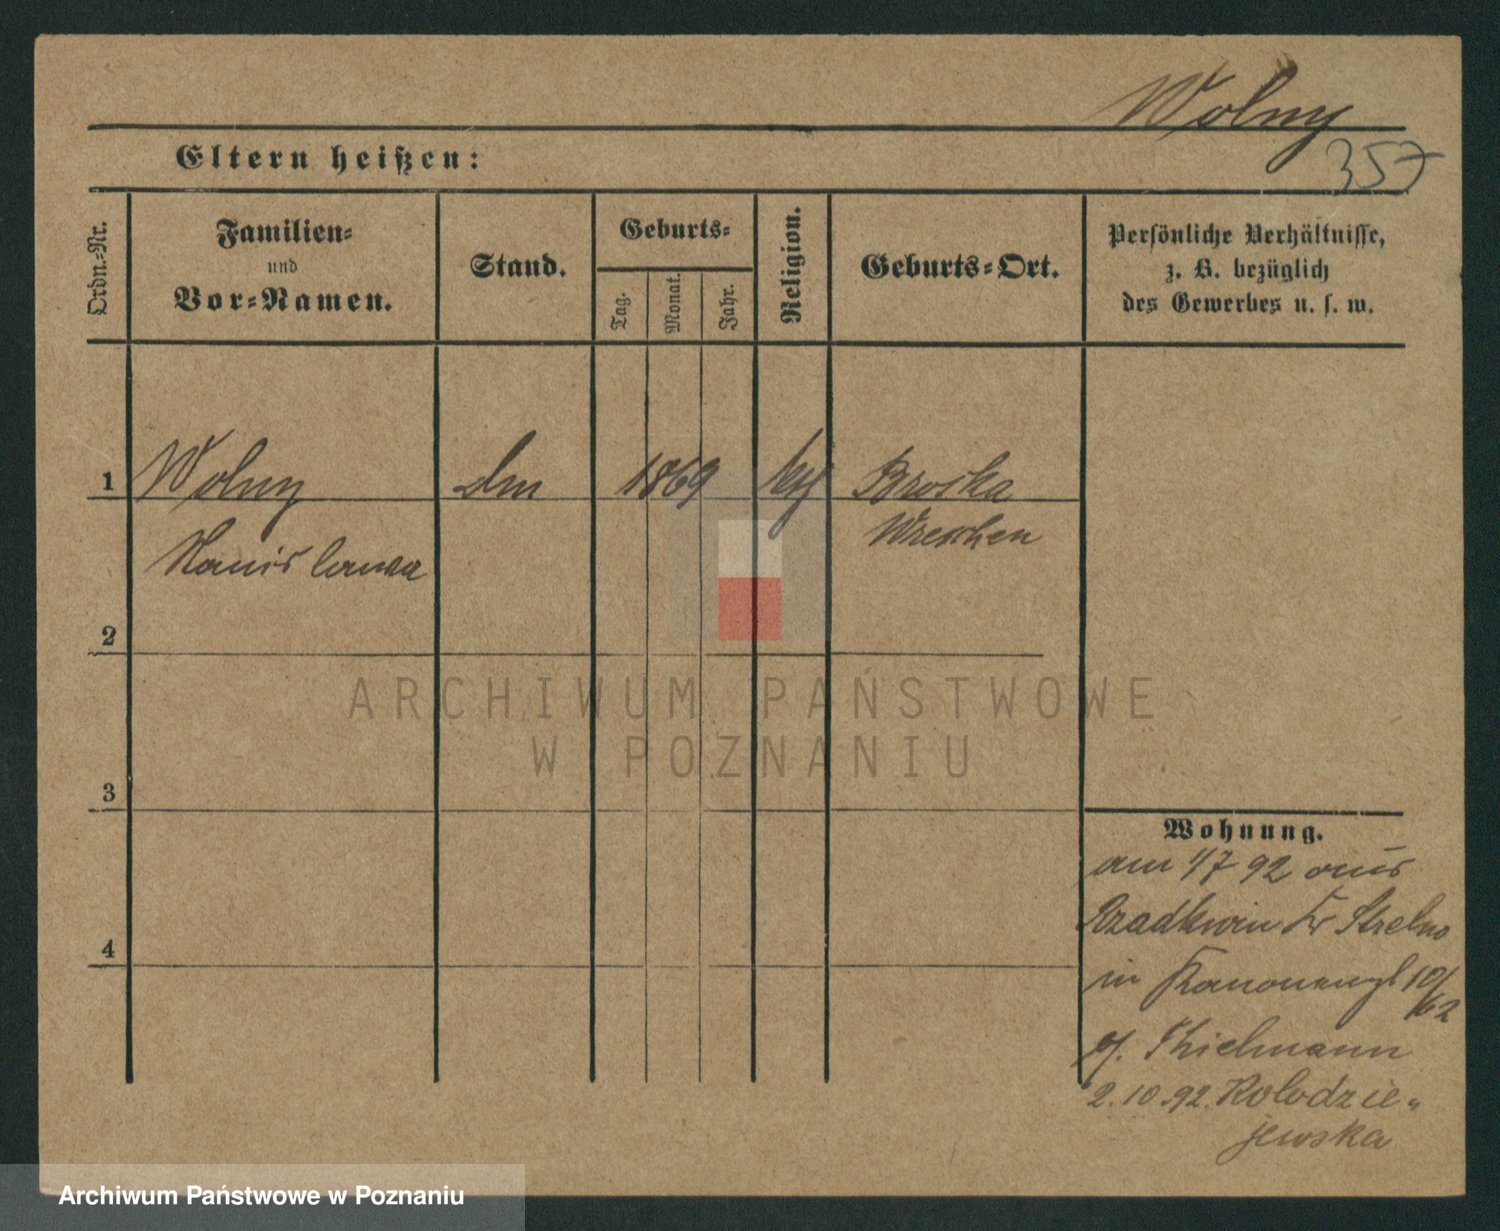 Wolny
357
Eltern heißen:
Ordn.-Nr.
Familien-
und
Vor-Namen.
Stand.
Geburts-
Tag.
Monat.
Jahr.
Religion.
Geburts-Ort.
Persönliche Verhältnisse,
z. B. bezüglich
des Gewerbes u. s. w.
1
Wolny
1869
Wreschen
Stanislawa
2
3
4
Wohnung.
am 1/7 92 aus
Rzadkwin Kr Strelno
in Kanonenpl 10/
Thielmann
2.10.92. Kolodzie-
jewska
ARCHIWUM PAŃSTWOWE
W POZNANIU
Archiwum Państwowe w Poznaniu